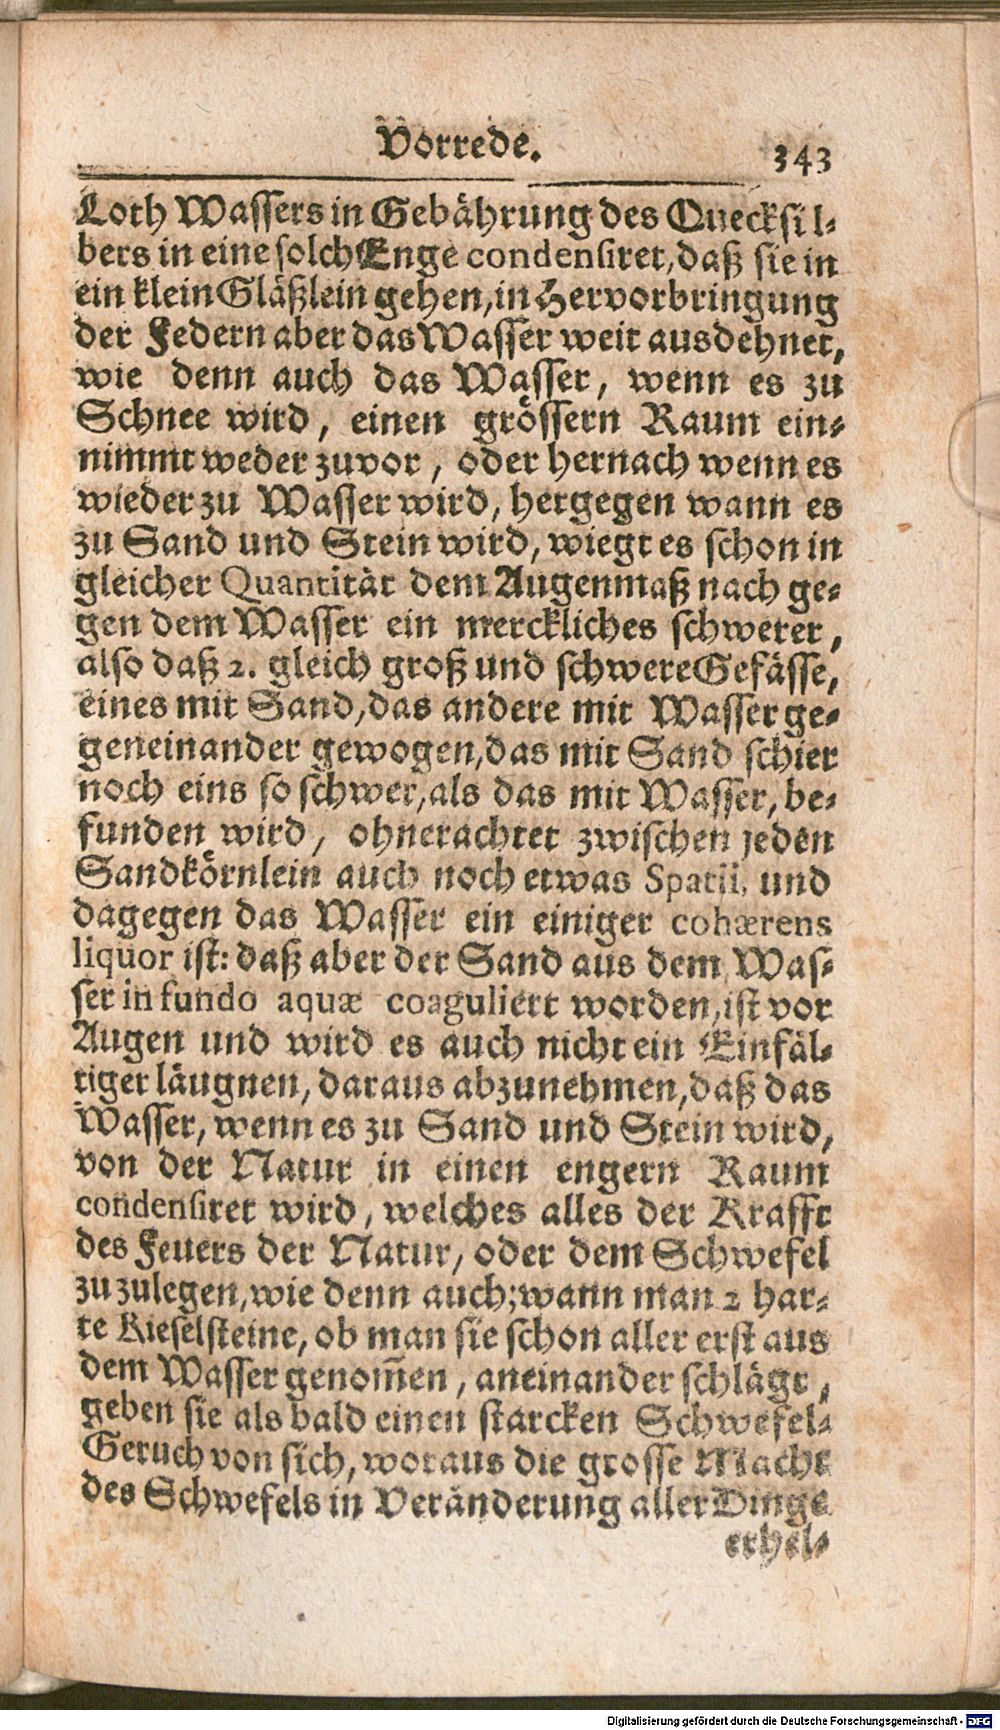 Vorrede. 343
Loth Wassers in Gebährung des Quecksil-
bers in eine solch Enge condensiret, daß sie in
ein klein Gläßlein gehen, in Hervorbringung
der Federn aber das Wasser weit ausdehnet,
wie denn auch das Wasser, wenn es zu
Schnee wird, einen grössern Raum ein-
nimmt weder zuvor, oder hernach wenn es
wieder zu Wasser wird, hergegen wann es
zu Sand und Stein wird, wiegt es schon in
gleicher Quantität dem Augenmaß nach ge-
gen dem Wasser ein merckliches schwerer,
also daß 2. gleich groß und schwere Gefässe,
eines mit Sand, das andere mit Wasser ge-
geneinander gewogen, das mit Sand schier
noch eins so schwer, als das mit Wasser, be-
funden wird, ohnerachtet zwischen jeden
Sandkörnlein auch noch etwas Spatii, und
dagegen das Wasser ein einiger cohærens
liquor ist: daß aber der Sand aus dem Was-
ser in fundo aquæ coaguliert worden, ist vor
Augen und wird es auch nicht ein Einfäl-
tiger läugnen, daraus abzunehmen, daß das
Wasser, wenn es zu Sand und Stein wird,
von der Natur in einen engern Raum
condensiret wird, welches alles der Krafft
des Feuers der Natur, oder dem Schwefel
zuzulegen, wie denn auch; wann man 2 har-
te Kieselsteine, ob man sie schon aller erst aus
dem Wasser genom̅en, aneinander schlägt,
geben sie als bald einen starcken Schwefel-
Geruch von sich, woraus die grosse Macht
des Schwefels in Veränderung aller Dinge
erhel-
Digitalisierung gefördert durch die Deutsche Forschungsgemeinschaft - DFG